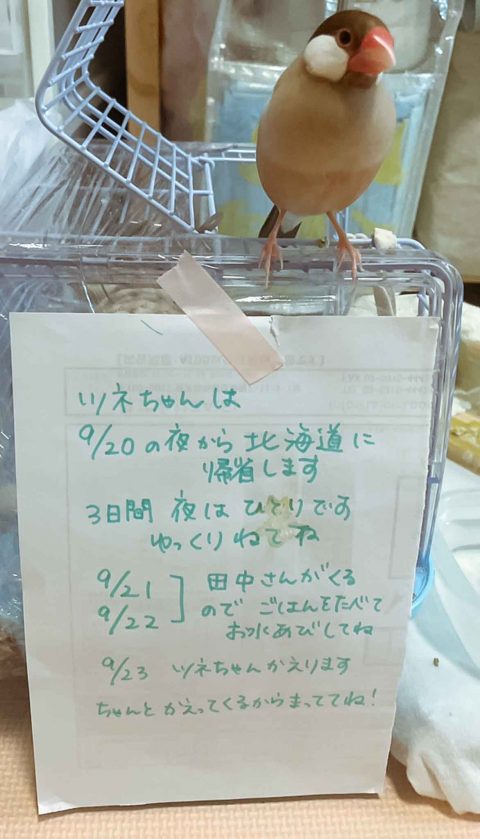 ツネちゃんは
9/20の夜から北海道に
帰省します
3日間 夜はひとりです
ゆっくりねてね
9/21
9/22
田中さんがくる
ので ごはんをたべて
お水あびしてね
9/23 ツネちゃんかえります
ちゃんとかえってくるからまっててね!